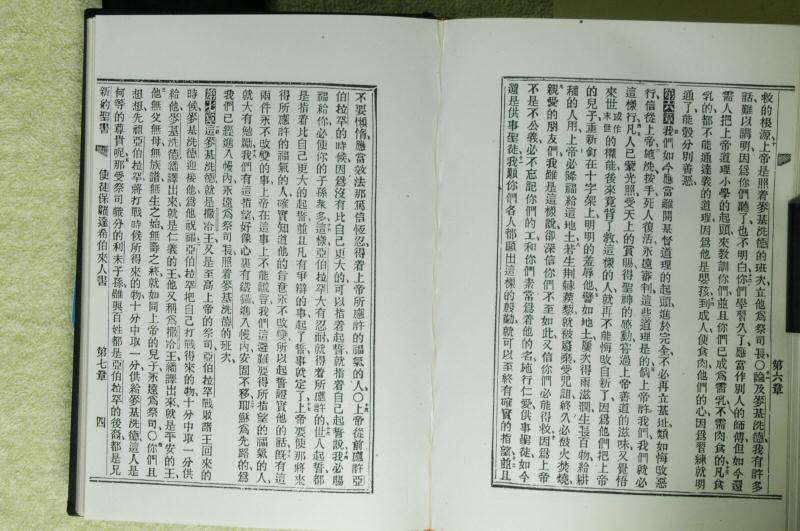 第六章
救的根源、上帝是照着麥基洗德的班次、立他爲祭司長、〇論及麥基洗德、我有許多
話難以講明、因爲你們聽了也不明白、你們學習久了、應當作別人的師傅、但如今還
需人把上帝道理小學的起頭來敎訓你們、並且你們已成爲需乳不需肉食的、凡食
乳的都不能通達義的道理、因爲他是嬰孩、到成人便食肉、他們的心因爲習練就明
通了、能彀分別善惡、
第六章我們如今應當離開基督道理的起頭、進於完全、不必再立基址、類如悔改惡
行、信從上帝、施洗、按手、死人復活、永遠審判、這些道理是的、倘上帝許我們、我們就必
這樣行、凡人已蒙光照、受天上的賞賜、得聖神的感動、嘗過上帝善道的滋味、又覺悟
來世或作末世的權能、後來竟背了敎、這樣的人、就再不能悔改自新了、因爲他們把上帝
的兒子重新釘在十字架上、明明的羞辱他、譬如地土屢次得雨滋潤、生長百物、給耕
種的人用、上帝必降福給這地土、若生荆棘蒺藜、就被廢棄受咒詛、終久必被火焚燒、
親愛的朋友們、我雖是這樣說、卻深信你們不至如此、又信你們必能得救、因爲上帝
不是不公義、必不忘記你們的工、和你們素常爲着他的名施行仁愛、供事聖徒、如今
還是供事聖徒、我願你們各人都顯出這樣的殷勤、就可以至終有確實的指望、並且
不要懶惰、應當效法那篤信恆忍得着上帝所應許的福氣的人、〇上帝從前應許亞
伯拉罕的時候、因爲沒有比自己更大的可以指着起誓、就指着自己起誓說、我必賜
福給你、必使你的子孫衆多、這樣亞伯拉罕大有忍耐、就得着所應許的、世人起誓都
是指着比自己更大的起誓、並且凡有爭辯的事、起了誓事就定了、上帝要使那將來
得所應許的福氣的人、確實知道他的旨意永不改變、所以起誓證實他的話、旣有這
兩件永不改變的事、上帝在這事上不能說謊、我們這避難要得所指望的福氣的人、
就大有勉勵、我們有這指望、好像心裏有錨、錨進入幔內安固不移、耶穌爲先路的爲
我們已經進入幔內、永遠爲祭司長、照着麥基洗德的班次、
第七章這麥基洗德就是撒冷王、又是至高上帝的祭司、亞伯拉罕戰敗諸王回來的
時候、麥基洗德迎接他、爲他祝福、亞伯拉罕把自己打戰得來的物、十分中取一分供
給他、麥基洗德繙譯出來、就是仁義的王、他又稱爲撒冷王、繙譯出來、就是平安的王、
他無父無母無族譜、無生之始、無壽之終、就如同上帝的兒子、永遠爲祭司、〇你們且
想想、先祖亞伯拉罕將打戰時候所得來的物、十分中取一分供給麥基洗德、這人是
何等的尊貴呢、那受祭司職分的利未子孫、雖與百姓都是亞伯拉罕的後裔、都是兄
新約聖書　使徒保羅達希伯來人書　第七章　四